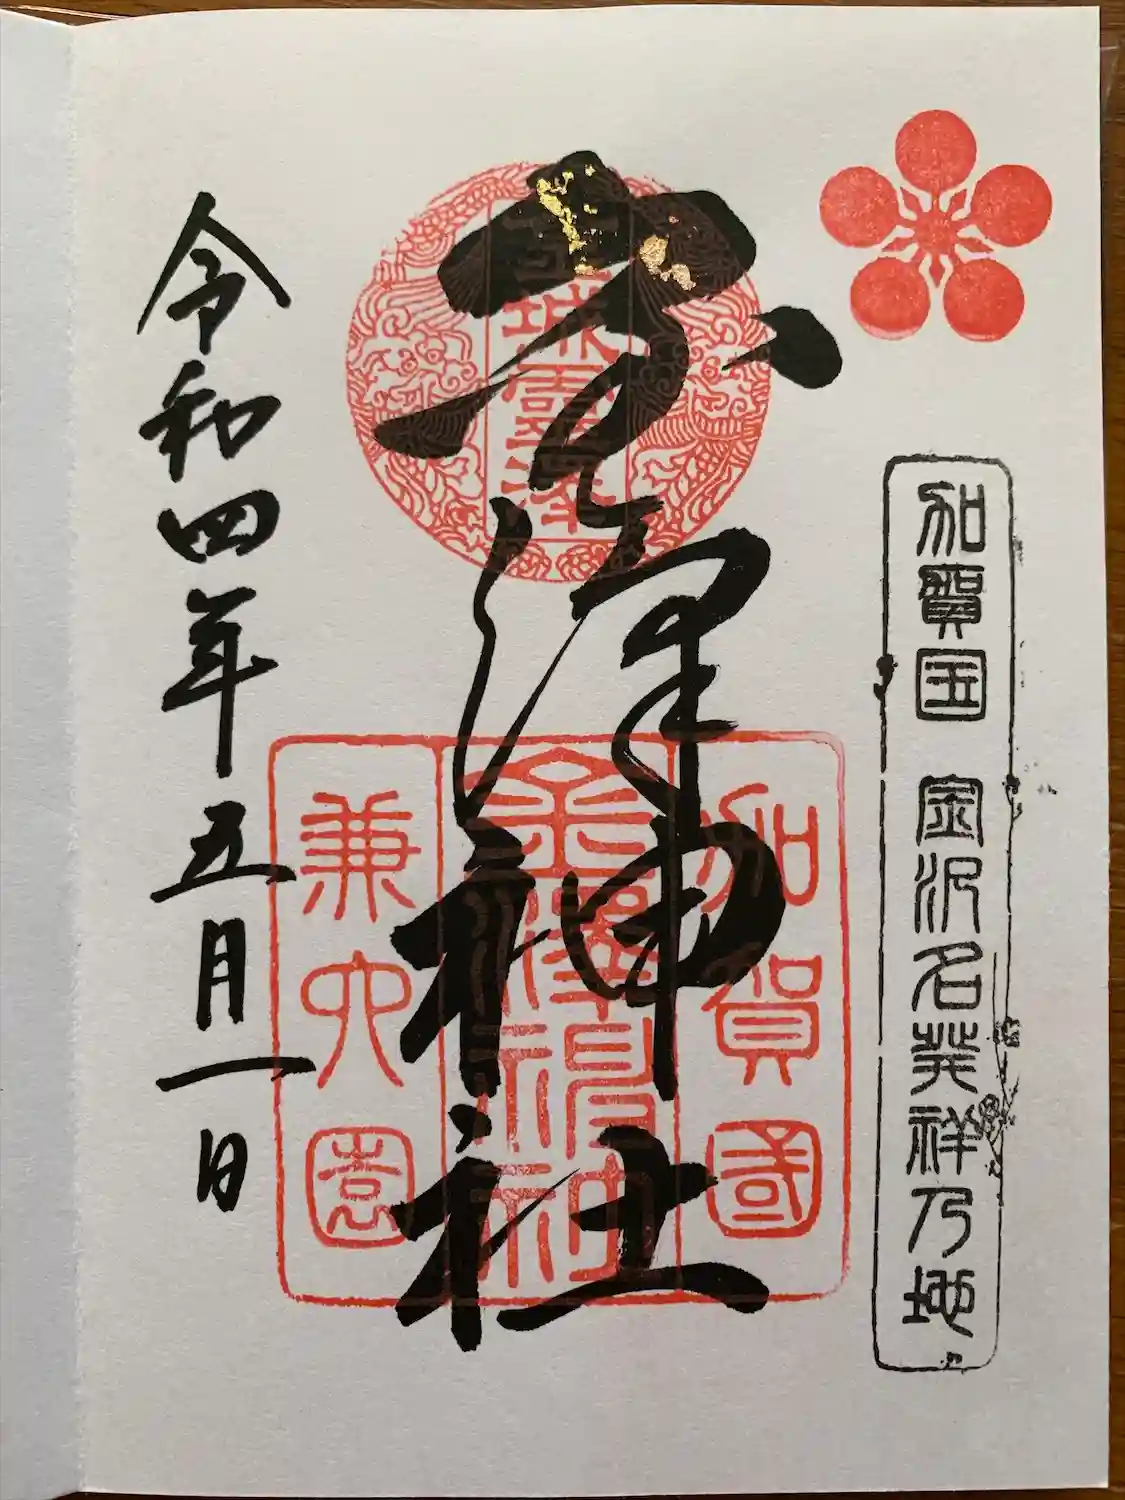 加賀国 金沢名発祥乃地
金澤神社
金城霊澤
加賀國
金澤神社
兼六園
令和四年五月一日